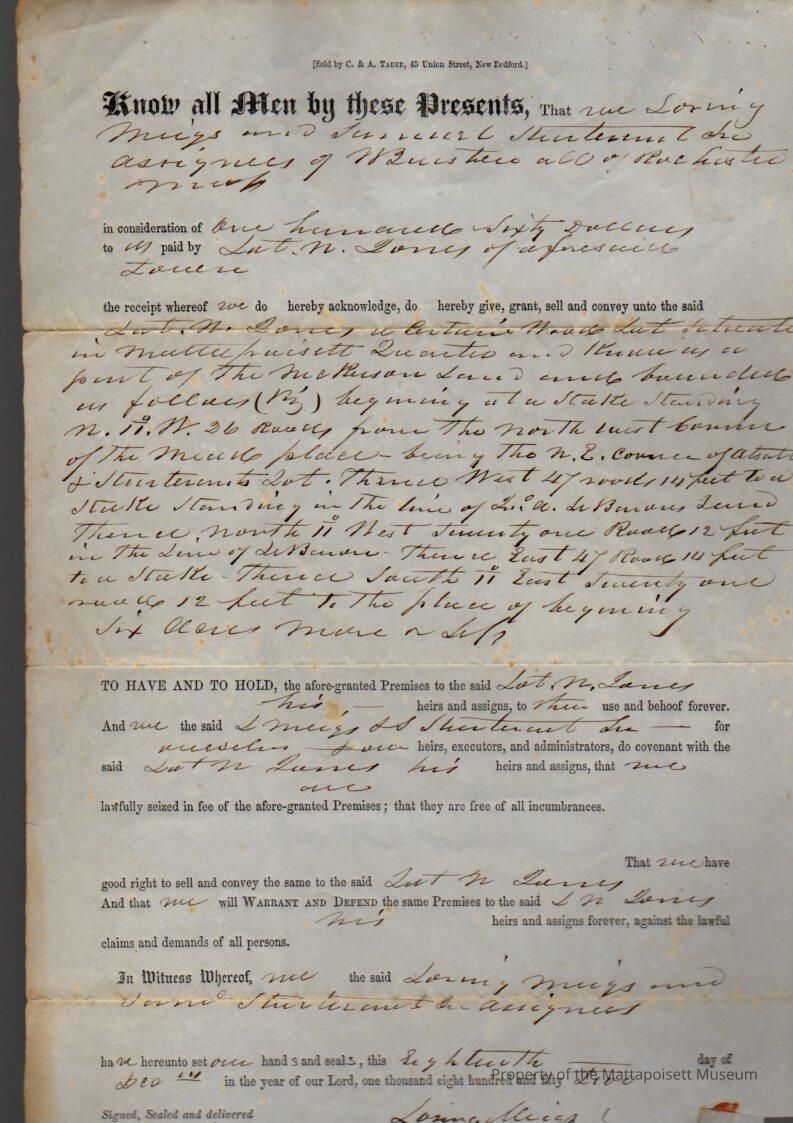 [Sold by C. & A. TABER, 45 Union Street, New Bedford.]
Know all Men by these Presents, That we Loring
Meigs and Samuel Sturtevant Jr
assignees of all of Rochester
in consideration of One hundred Sixty Dollars
to us paid by Lot. N. Jones of aforesaid
Town
the receipt whereof we do hereby acknowledge, do hereby give, grant, sell and convey unto the said
Lot. N. Jones a Certain Wood Lot Situate
in Mattapoisett Quarter and Known as a
part of The Land and bounded
as follows (Viz) begining at a Stake Standing
N. 11° W. 26 Roads from The north west Corner
of The Meads place - being The N.E. corner of
& Sturtevants Lot. Thence West 47 roods 14 feet to a
Stake Standing in The line of LeBarons Land
Thence North 11° West Twenty one Roads 12 feet
in The Line of LeBaron - Thence East 47 Roads 14 feet
to a Stake - Thence South 11° East Twenty one
roads 12 feet To The place of begining
Six Acres More or Less
TO HAVE AND TO HOLD, the afore-granted Premises to the said Lot. N. Jones
his heirs and assigns, to their use and behoof forever.
And we the said L Meigs & S Sturtevant Jr for
ourselves & our heirs, executors, and administrators, do covenant with the
said Lot N Jones his heirs and assigns, that we
are
lawfully seized in fee of the afore-granted Premises; that they are free of all incumbrances.
That we have
good right to sell and convey the same to the said Lot N Jones
And that we will WARRANT AND DEFEND the same Premises to the said L N Jones
his heirs and assigns forever, against the lawful
claims and demands of all persons.
In Witness Whereof, we the said Loring Meigs and
Saml Sturtevant Jr Assignees
have hereunto set our hands and seals, this Eighteenth day of
Dec in the year of our Lord, one thousand eight hundred and fifty
Property of the Mattapoisett Museum
Signed, Sealed and delivered Loring Meigs